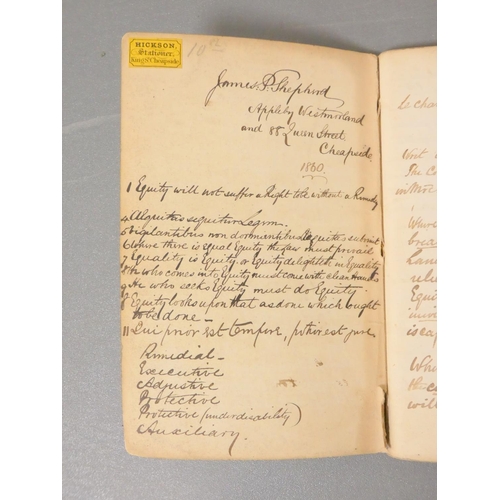 HICKSON,
Stationer,
King St Cheapside
James P. Shepherd
Appleby Westmorland
and 88 Queen Street
Cheapside
1860
1 Equity will not suffer a Right to be without a Remedy
4 Aequitas sequitur Legem.
5 Vigilantibus non dormientibus Aequitas subvenit
6 Where there is equal Equity the Law must prevail
7 Equality is Equity, or Equity delighteth in Equality
8 He who comes into Equity must come with clean Hands
9 He who seeks Equity must do Equity
Equity looks upon that as done which ought
to be done -
11 Qui prior est tempore, potior est jure
Remedial -
Executive
Adjustive
Protective
Protective (under disability)
Auxiliary.